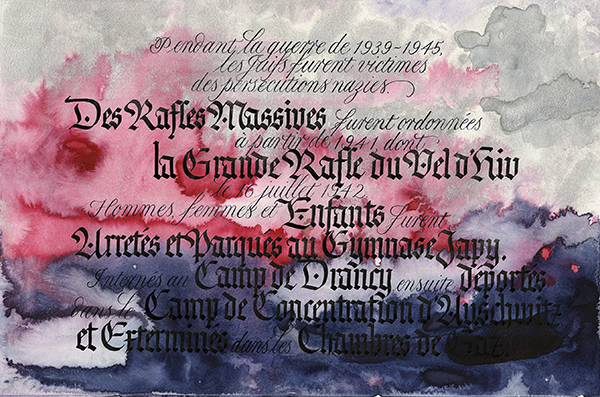 Pendant la guerre de 1939-1945,
les Juifs furent victimes
des persécutions nazies.
Des Rafles Massives furent ordonnées
à partir de 1941, dont
la Grande Rafle du Vel d'hiv
le 16 juillet 1942.
Hommes, femmes et Enfants furent
Arretés et Parqués au Gymnase Japy.
Internés au Camp de Drancy ensuite déportés
dans le Camp de Concentration d'Auschwitz
et Exterminés dans les Chambres de Gaz.